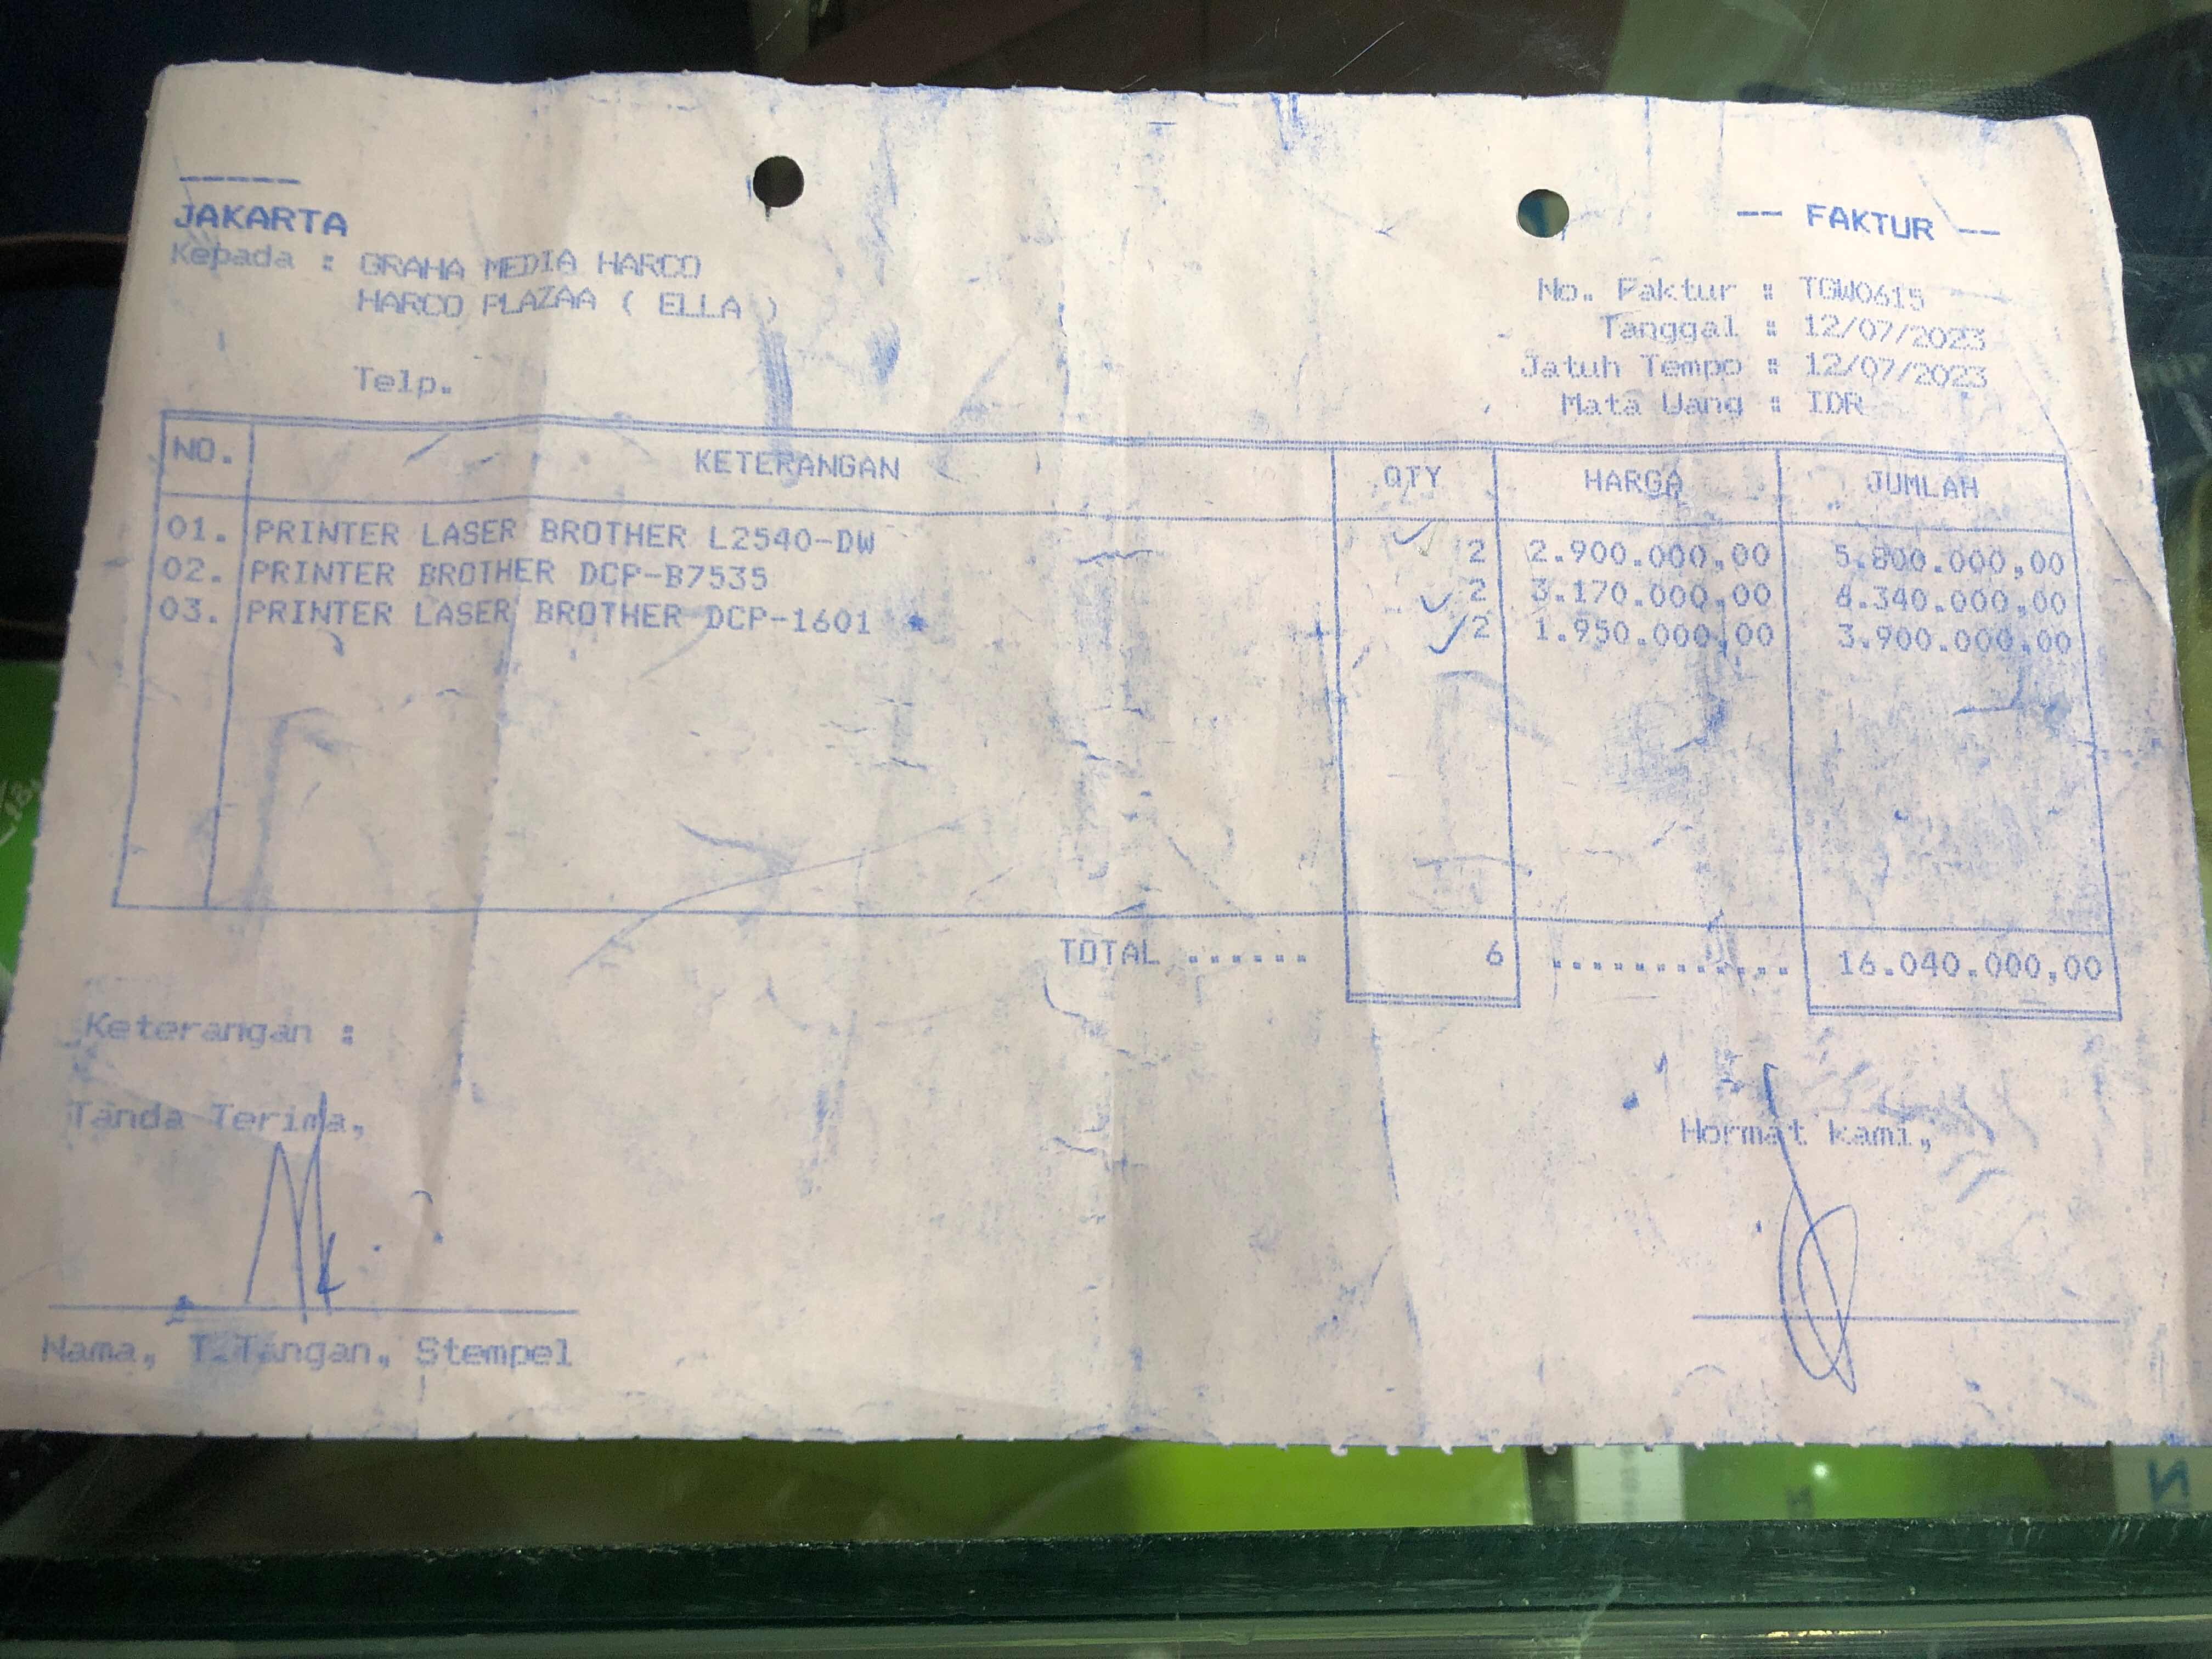 JAKARTA
-- FAKTUR --
Kepada : GRAHA MEDIA HARCO
HARCO PLAZAA ( ELLA )
Telp.
No. Faktur : TGW0615
Tanggal : 12/07/2023
Jatuh Tempo : 12/07/2023
Mata Uang : IDR
NO. KETERANGAN QTY HARGA JUMLAH
01. PRINTER LASER BROTHER L2540-DW 2 2.900.000,00 5.800.000,00
02. PRINTER BROTHER DCP-B7535 2 3.170.000,00 6.340.000,00
03. PRINTER LASER BROTHER DCP-1601 2 1.950.000,00 3.900.000,00
TOTAL ...... 6 ............ 16.040.000,00
Keterangan :
Tanda Terima,
Hormat kami,
Nama, T.Tangan, Stempel